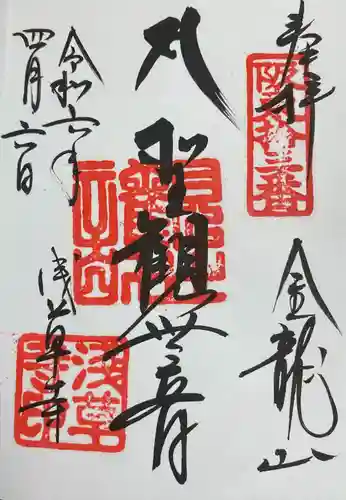 奉拝
坂東拾三番
金龍山
聖観世音
浅草寺
令和六年
四月六日
浅草寺印